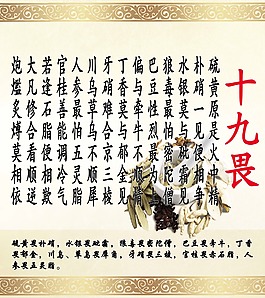 十九畏
硫黄原是火中精
朴硝一见便相争
水银莫与砒霜见
狼毒最怕密陀僧
巴豆性烈最为上
偏与牵牛不顺情
丁香莫与郁金见
牙硝难合京三棱
川乌草乌不顺犀
人参最怕五灵脂
官桂善能调冷气
若逢石脂便相欺
大凡修合看顺逆
炮爁炙煿莫相依
硫黄畏朴硝，水银畏砒霜，狼毒畏密陀僧，巴豆畏牵牛，丁香
畏郁金，川乌、草乌畏犀角，牙硝畏三棱，官桂畏赤石脂，人
参畏五灵脂。